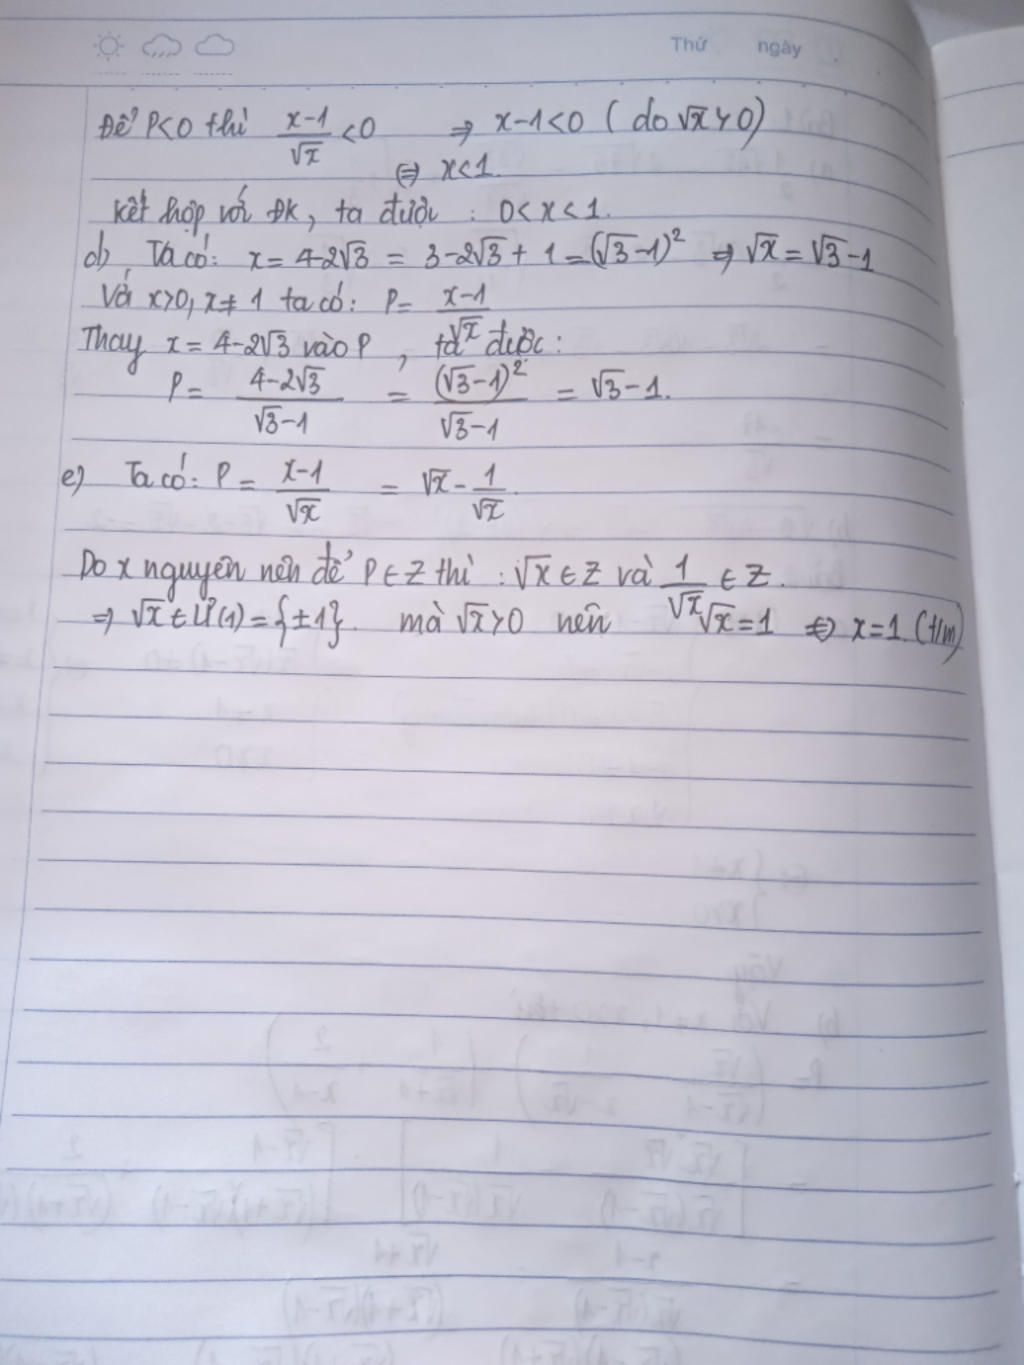 Thứ ngày
Để P<0 thì \frac{x-1}{\sqrt{x}} <0 ⇒ x-1<0 ( do √x>0)
⇔ x<1.
Kết hợp với ĐK, ta được : 0<x<1.
d) Ta có: x = 4-2√3 = 3-2√3 + 1 = (√3-1)² ⇒ √x = √3-1
Với x>0, x≠1 ta có: P = \frac{x-1}{\sqrt{x}}
Thay x = 4-2√3 vào P , ta được:
P = \frac{4-2\sqrt{3}}{\sqrt{3}-1} = \frac{(\sqrt{3}-1)^2}{\sqrt{3}-1} = √3-1.
e) Ta có: P = \frac{x-1}{\sqrt{x}} = √x - \frac{1}{\sqrt{x}}.
Do x nguyên nên để P∈Z thì : √x ∈ Z và \frac{1}{\sqrt{x}} ∈ Z.
⇒ √x ∈ Ư(1) = {±1}. mà √x>0 nên √x = 1 ⇔ x=1. (t/m)